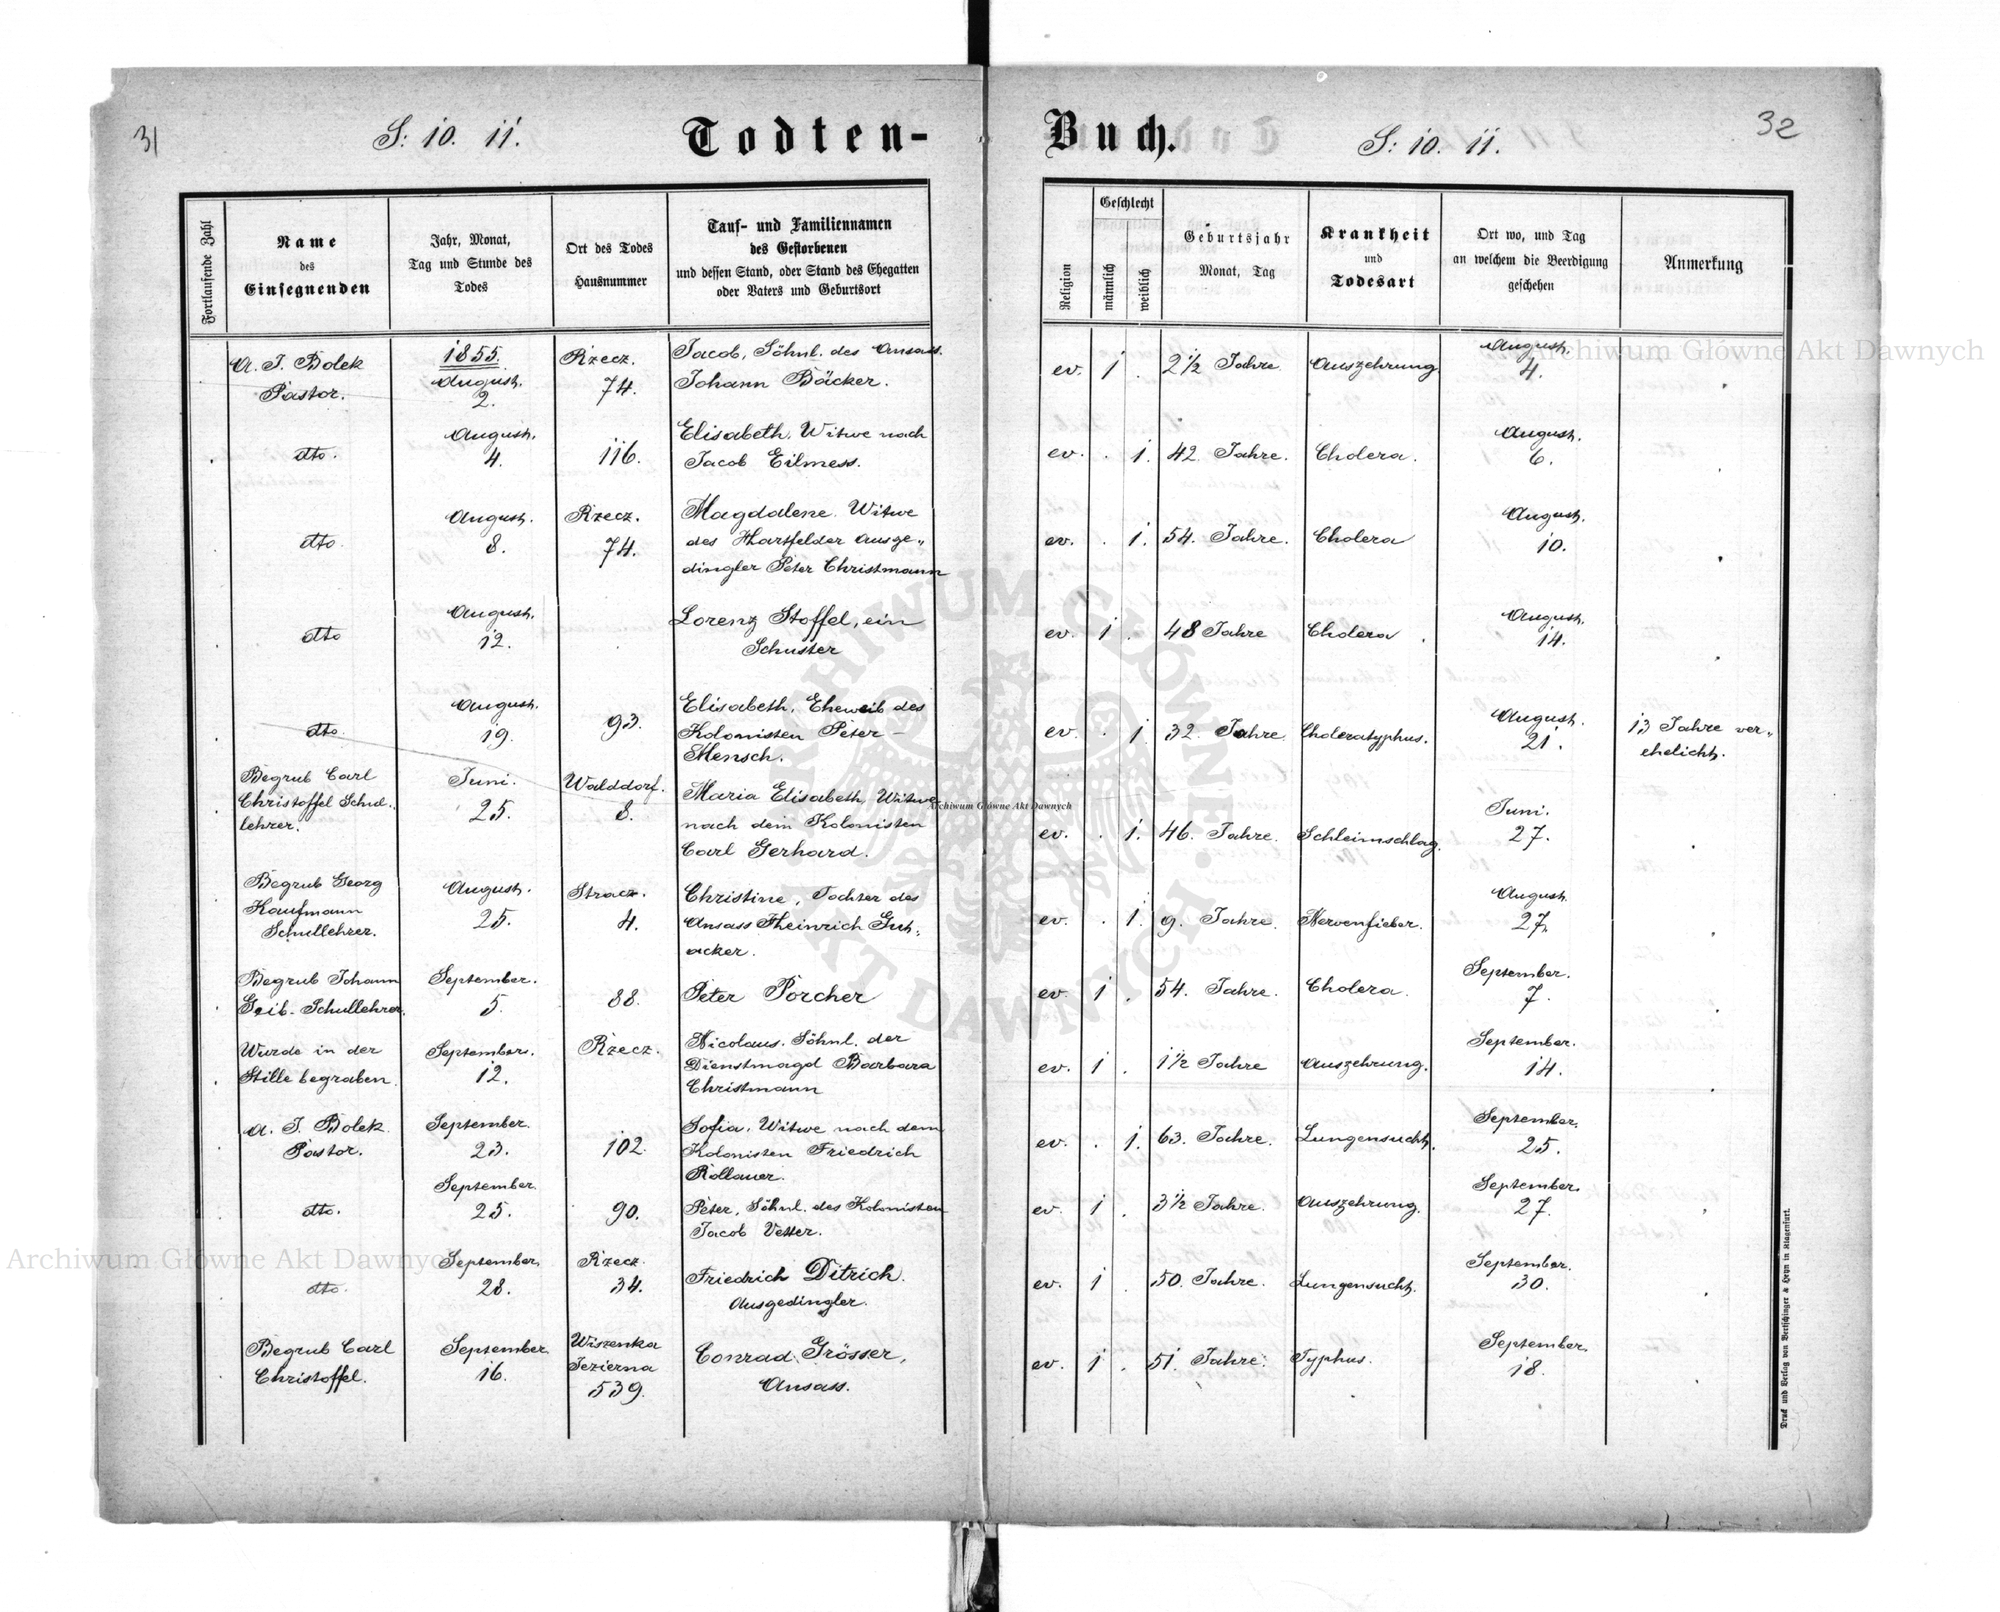 31
S: 10. 11.
Todten-
Buch.
S: 10. 11.
32
Fortlaufende Zahl
Name
des
Einsegnenden
Jahr, Monat,
Tag und Stunde des
Todes
Ort des Todes
Hausnummer
Tauf- und Familiennamen
des Gestorbenen
und dessen Stand, oder Stand des Ehegatten
oder Vaters und Geburtsort
Religion
Geschlecht
männlich
weiblich
Geburtsjahr
Monat, Tag
Krankheit
und
Todesart
Ort wo, und Tag
an welchem die Beerdigung
geschehen
Anmerkung
A. J. Bolek
Pastor.
1855.
August.
2.
Rzecz.
74.
Jacob, Söhnl. des Ansass.
Johann Bäcker.
ev. 1 . 2½ Jahre Auszehrung
August.
4.
dto.
August.
4.
116.
Elisabeth, Witwe nach
Jacob Eilmess.
ev. . 1. 42 Jahre. Cholera.
August.
6.
dto.
August.
8.
Rzecz.
74.
Magdalene Witwe
des Hartfelder Ausge„
dingler Peter Christmann
ev. . 1. 54. Jahre. Cholera
August.
10.
dto
August.
12.
Lorenz Stoffel, ein
Schuster
ev. 1 . 48 Jahre Cholera.
August.
14.
dto.
August.
19.
93.
Elisabeth, Eheweib des
Kolonisten Peter –
Mensch.
ev. . 1 32. Jahre Choleratyphus.
August.
21.
13 Jahre ver„
ehelicht.
Begrub Carl
Christoffel Schul.
lehrer.
Juni.
25.
Walddorf.
8.
Maria Elisabeth, Witwe
nach dem Kolonisten
Carl Gerhard.
ev. . 1. 46. Jahre. Schleimschlag.
Juni.
27.
Begrub Georg
Kaufmann
Schullehrer.
August.
25.
Stracz.
4.
Christine, Tochter des
Ansass Heinrich Gut„
acker.
ev. . 1. 9. Jahre. Nervenfieber.
August.
27.
Begrub Johann
Geib. Schullehrer.
September.
5.
88.
Peter Porcher
ev. 1 . 54. Jahre. Cholera.
September.
7.
Wurde in der
Stille begraben.
September.
12.
Rzecz.
Nicolaus. Söhnl. der
Dienstmagd Barbara
Christmann
ev. 1 . 1½ Jahre Auszehrung.
September.
14.
A. J. Bolek
Pastor.
September.
23.
102.
Sofia, Witwe nach dem
Kolonisten Friedrich
Rollauer.
ev. . 1. 63. Jahre. Lungensucht.
September.
25.
dto.
September.
25.
90.
Peter, Söhnl. des Kolonisten
Jacob Vetter.
ev. 1 . 3½ Jahre. Auszehrung.
September.
27.
dto.
September.
28.
Rzecz.
34.
Friedrich Ditrich.
Ausgedingler.
ev. 1 . 50. Jahre. Lungensucht.
September.
30.
Begrub Carl
Christoffel.
September.
16.
Wiszenka
Jezierna
539.
Conrad Grösser,
Ansass.
ev. 1 . 51. Jahre. Typhus.
September.
18.
Druck und Verlag von Bertschinger & Heyn in Klagenfurt.
Archiwum Główne Akt Dawnych
Archiwum Główne Akt Dawnych
Archiwum Główne Akt Dawnych
ARCHIWUM GŁÓWNE AKT DAWNYCH